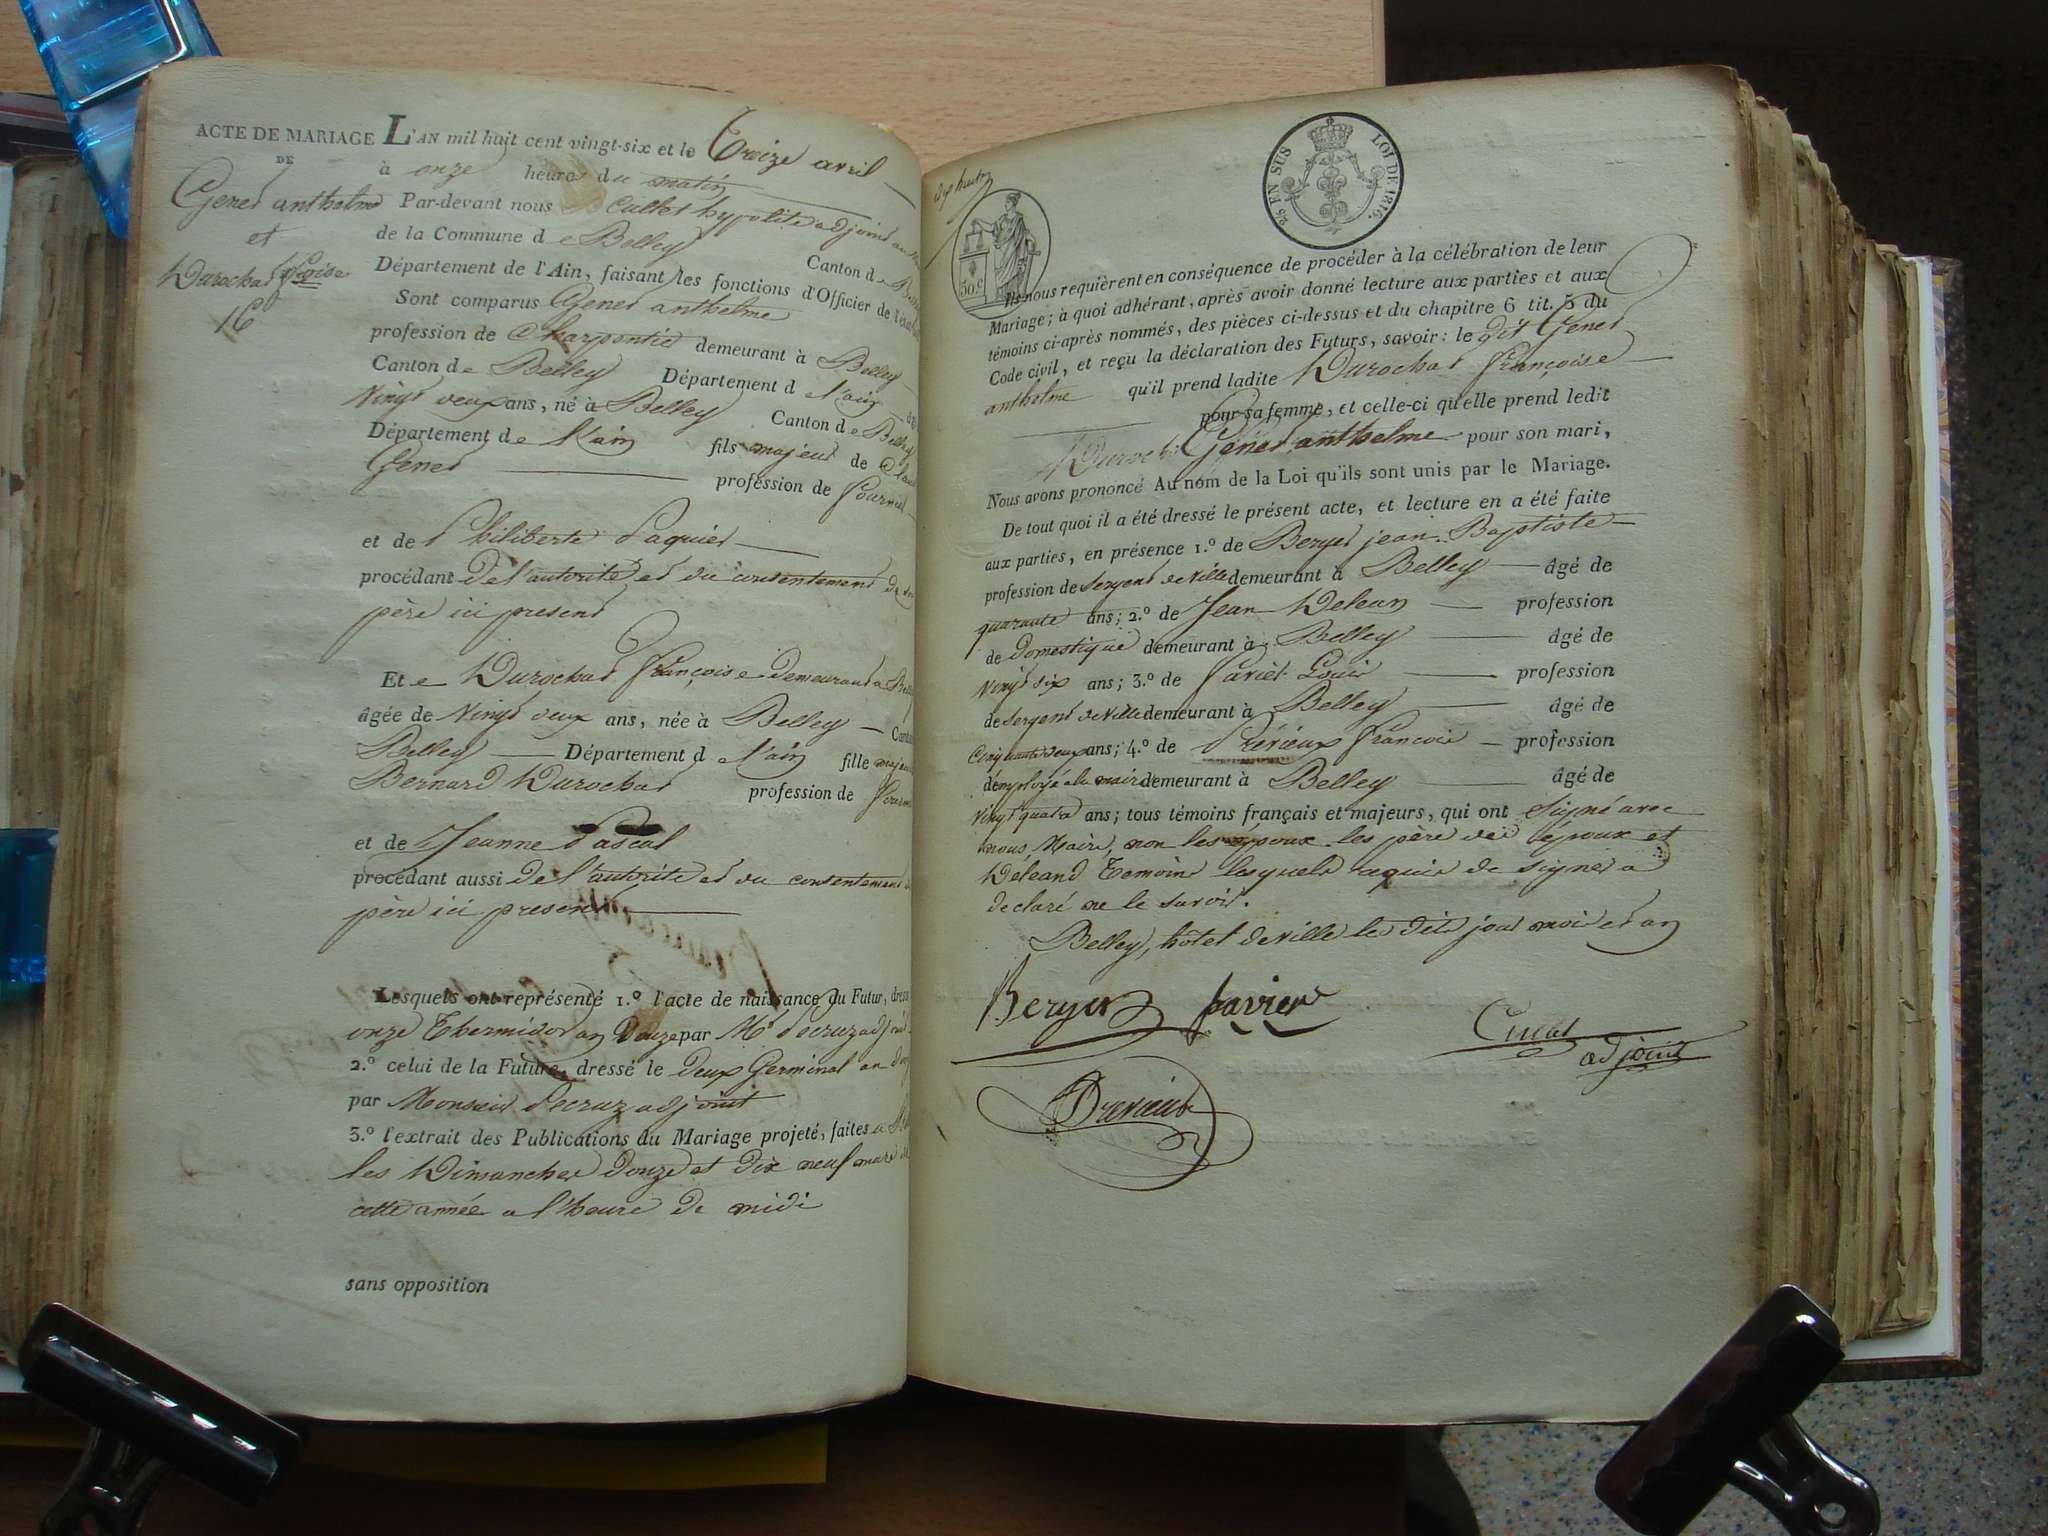 ACTE DE MARIAGE
DE
Genet anthelme
et
Durochat fçoise
16
L'AN mil huit cent vingt-six et le Treize avril
à onze heures du matin
Par-devant nous Cullet hypolite adjoint au
de la Commune de Belley Canton de
Département de l'Ain, faisant les fonctions d'Officier de l'état
Sont comparus Genet anthelme
profession de Charpentier demeurant à Belley
Canton de Belley Département de l'ain
Vingt deux ans, né à Belley Canton de Belley
Département de l'ain fils majeur de
Genet profession de
et de Philiberte Paquiet
procédant de l'autorité et du consentement de son
père ici present
Et Durochat françoise demeurant a
âgée de Vingt deux ans, née à Belley
Belley Département de l'ain fille
Bernard Durochat profession de
et de Jeanne Pascal
procédant aussi de l'autorité et du consentement
père ici present
Lesquels ont représenté 1.º l'acte de naissance du Futur,
onze Thermidor an Douze par Mr Decruz adjoint
2.º celui de la Future, dressé le deux Germinal an
par Monsieur Decruz adjoint
3.º l'extrait des Publications du Mariage projeté, faites a
les Dimanches Douze et Dix neuf mars de
cette année a l'heure de midi
sans opposition
30.c
25 EN SUS LOI DE 1816.
Ils nous requièrent en conséquence de procéder à la célébration de leur
Mariage; à quoi adhérant, après avoir donné lecture aux parties et aux
témoins ci-après nommés, des pièces ci-dessus et du chapitre 6 tit. 5 du
Code civil, et reçu la déclaration des Futurs, savoir: le dit Genet
anthelme qu'il prend ladite Durochat françoise
pour sa femme, et celle-ci qu'elle prend ledit
Genet anthelme pour son mari,
Nous avons prononcé Au nom de la Loi qu'ils sont unis par le Mariage.
De tout quoi il a été dressé le présent acte, et lecture en a été faite
aux parties, en présence 1.º de Berger jean Baptiste
profession de Sergent de Ville demeurant à Belley âgé de
quarante ans; 2.º de Jean Delean profession
de Domestique demeurant à Belley âgé de
Vingt six ans; 3.º de Louis profession
de Sergent de Ville demeurant à Belley âgé de
Cinquante deux ans; 4.º de francois profession
d'employé a la mairie demeurant à Belley âgé de
Vingt quatre ans; tous témoins français et majeurs, qui ont signé avec
nous, Maire, non les époux les père de époux et
Deleand Temoins lesquels requis de signer a
declaré ne le savoir.
Belley, hôtel de ville les dits jour mois et an
Berger
adjoint